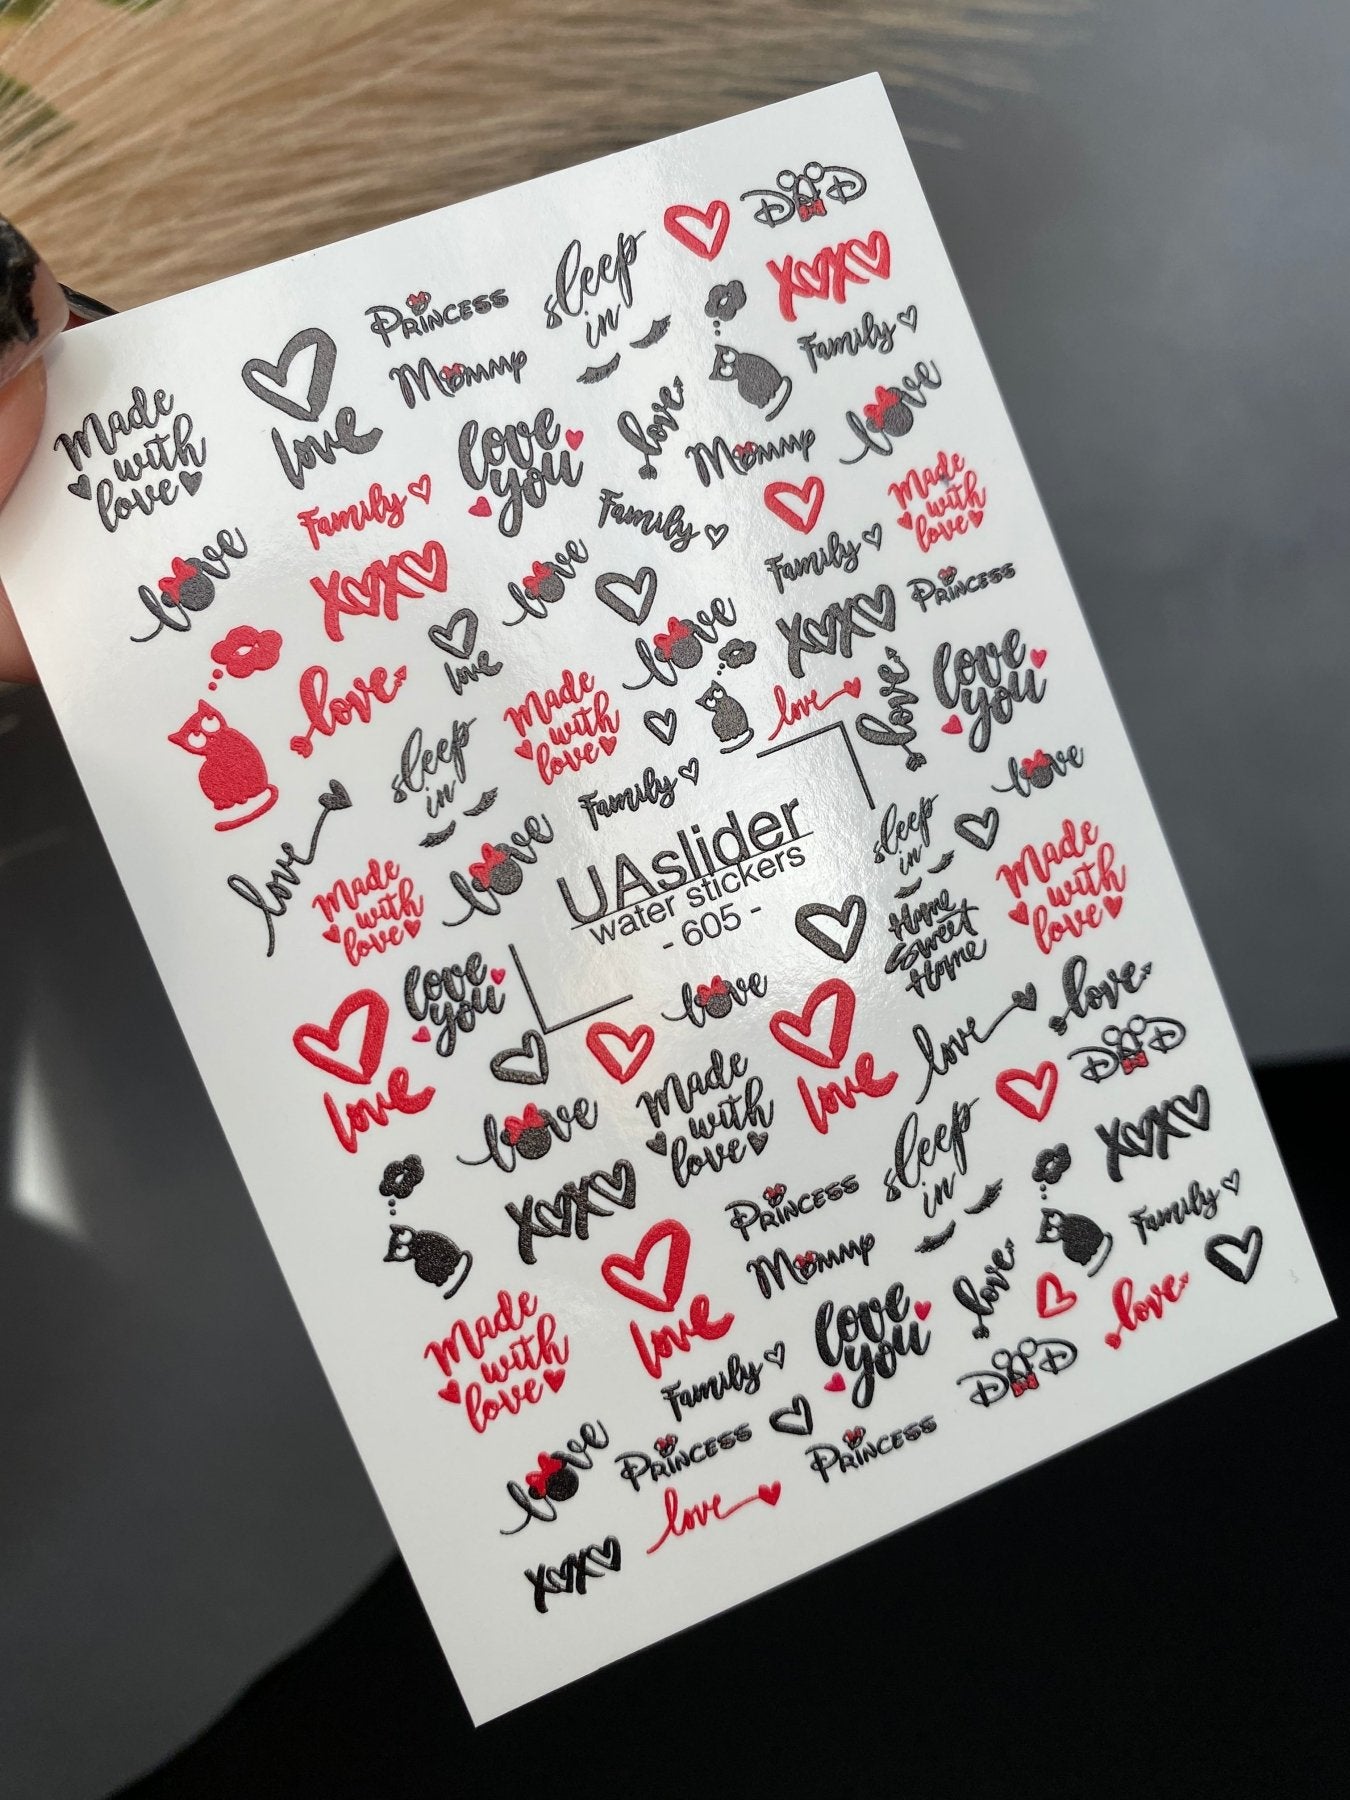 DAD
sleep
in
XOXO
Princess
Mommy
Family
love
Made
with
love
love
love
you
love
Mommy
Family
Family
Made
with
love
love
XOXO
love
Family
Princess
love
XOXO
love
love
love
you
love
Made
with
love
love
sleep
in
Family
love
UAslider
water stickers
- 605 -
sleep
in
love
love
Made
with
love
Home
Sweet
Home
Made
with
love
love
you
love
love
love
love
love
DAD
Made
with
love
love
XOXO
sleep
in
XOXO
Princess
Mommy
Family
love
Made
with
love
love
you
love
love
Family
DAD
love
Princess
Princess
love
XOXO